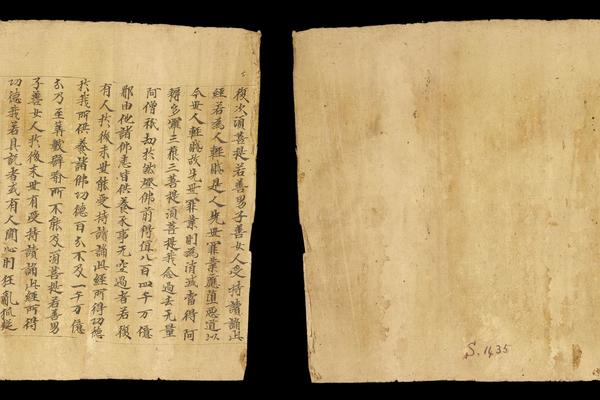 復次須菩提若善男子善女人受持讀誦此
經若為人輕賤是人先世罪業應墮惡道以
今世人輕賤故先世罪業則為消滅當得阿
耨多羅三藐三菩提須菩提我念過去无量
阿僧祇劫於然燈佛前得值八百四千万億
那由他諸佛悉皆供養承事无空過者若復
有人於後末世能受持讀誦此經所得功德
於我所供養諸佛功德百分不及一千万億
分乃至算數譬喻所不能及須菩提若善男
子善女人於後末世有受持讀誦此經所得
功德我若具說者或有人聞心則狂亂狐疑
S.1435